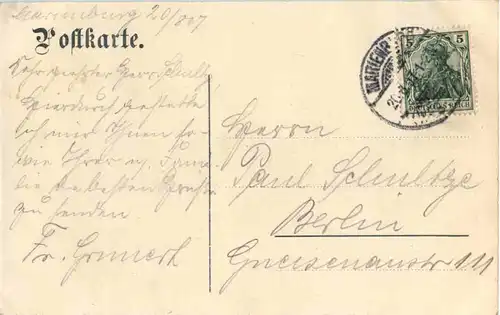 Marienburg 20/8 07
Postkarte.
Sehr geehrter Herr Schultz
Hierdurch gestatte
ich mir Ihnen so-
wie Ihrer w. Fami-
lie die besten Grüße
zu senden.
Fr. Grunert
MARIENB
5 5
Herrn
Paul Schultze
Berlin
Gneisenaustr 111